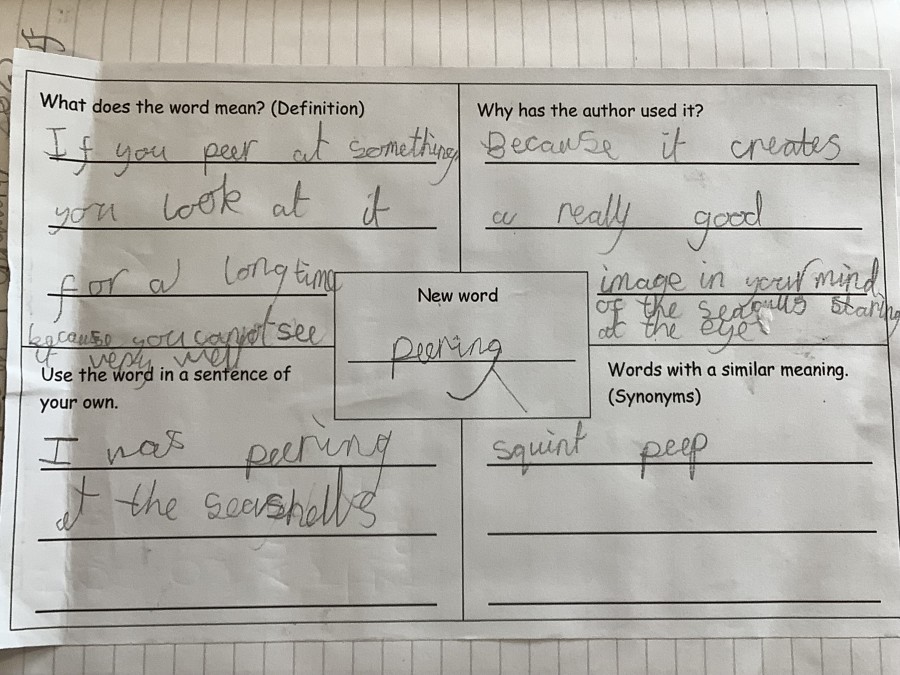 What does the word mean? (Definition)
If you peer at something
you look at it
for a long time
because you cannot see
it very well
Why has the author used it?
Because it creates
a really good
image in your mind
of the seagulls staring
at the eyes
New word
peering
Use the word in a sentence of
your own.
I was peering
at the seashells
Words with a similar meaning.
(Synonyms)
squint peep